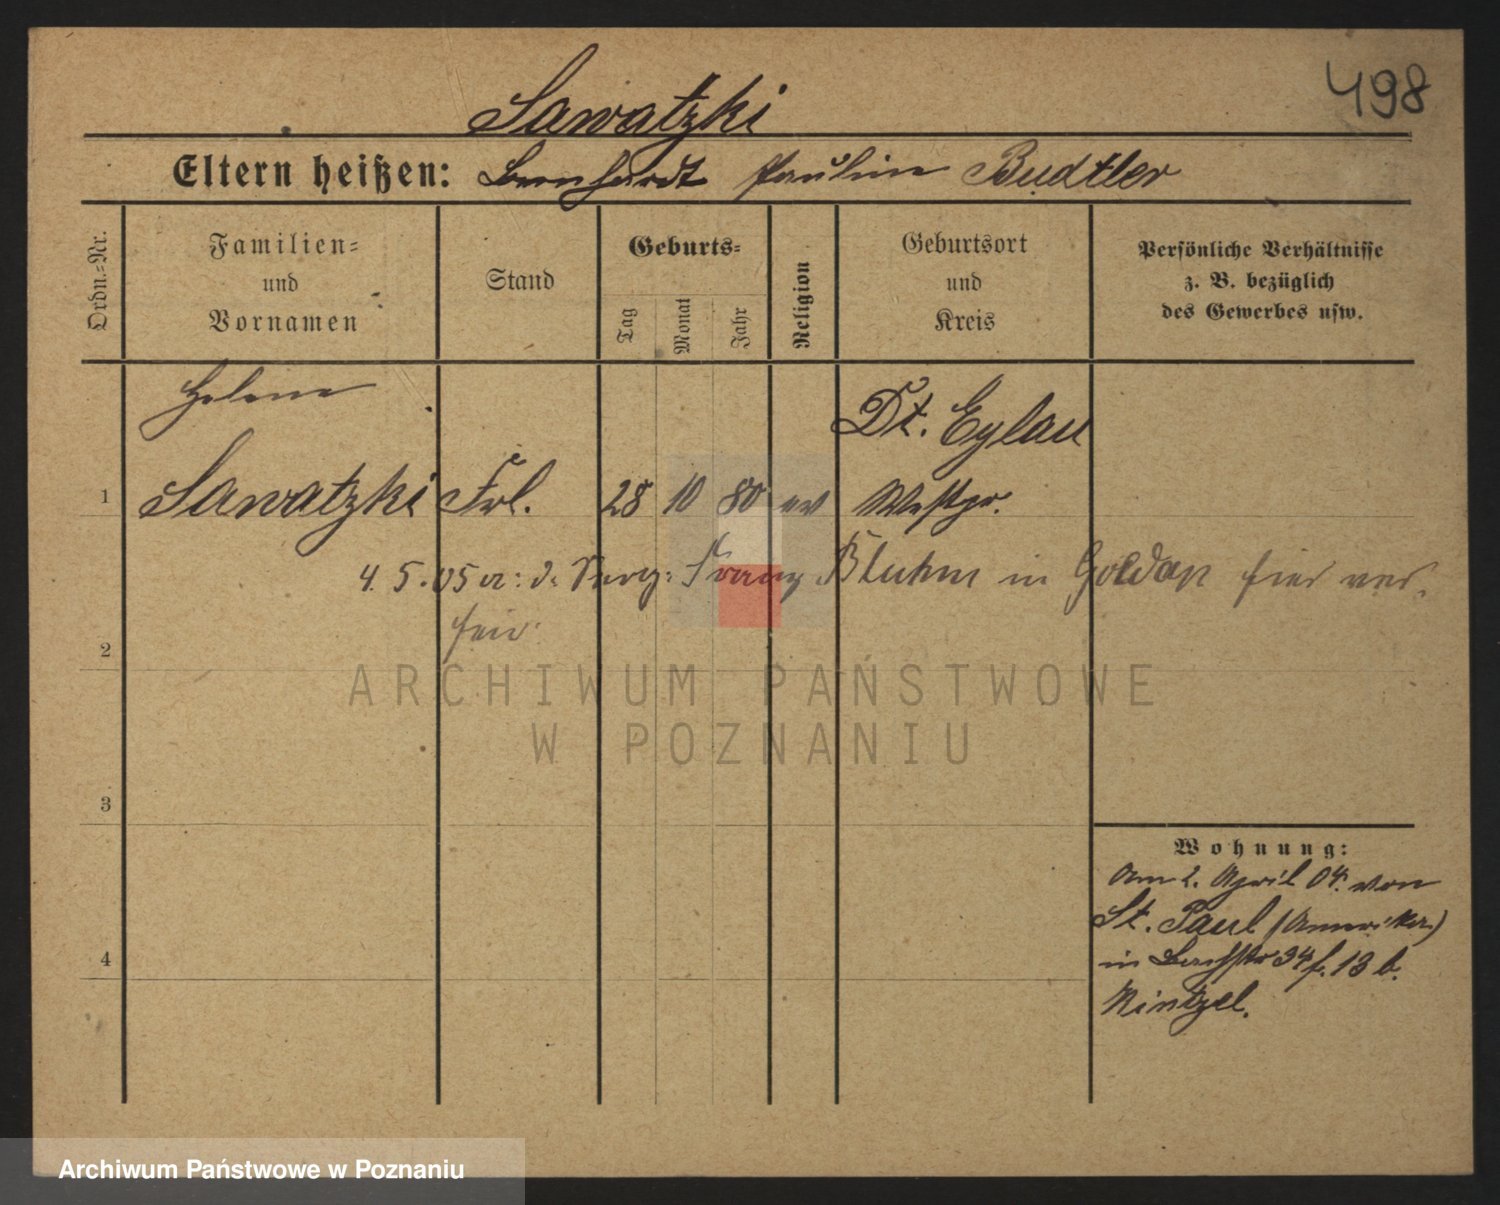 498
Sawatzki
Eltern heißen: Bernhardt Pauline Budtler
Ordn.-Nr.
Familien-
und
Vornamen
Stand
Geburts-
Tag
Monat
Jahr
Religion
Geburtsort
und
Kreis
Persönliche Verhältnisse
z. B. bezüglich
des Gewerbes usw.
Helene
Dt. Eylau
1 Sawatzki Frl. 28 10 80 ev Westpr.
4. 5. 05 d. Franz Bluhm in Goldap
2
3
Wohnung:
Am 2. April 04. von
St. Paul (Amerika)
in 34 13 b.
4
Kintzel.
ARCHIWUM PAŃSTWOWE
W POZNANIU
Archiwum Państwowe w Poznaniu